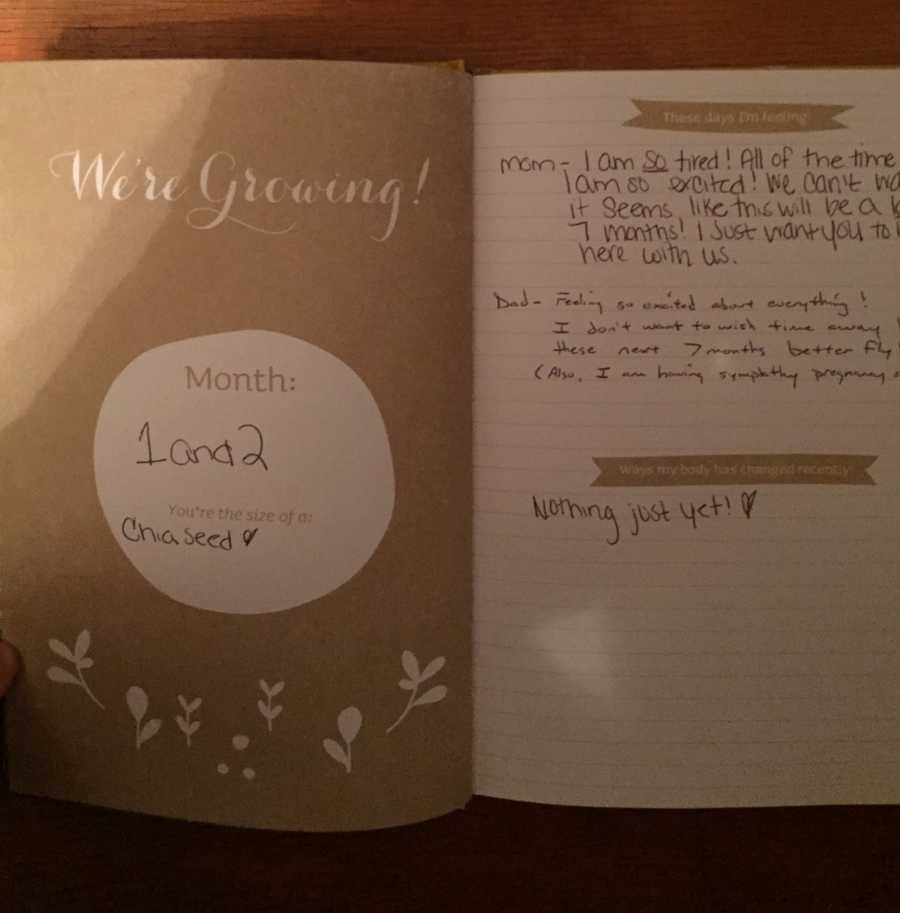 We're Growing!
Month:
1 and 2
You're the size of a:
Chia seed
These days I'm feeling:
mom - I am so tired! All of the time
I am so excited! We can't
it seems like this will be a
7 months! I just want you to
here with us.
Dad - Feeling so excited about everything!
I don't want to wish time away
these next 7 months better fly
(Also, I am having sympathy pregnancy
Ways my body has changed recently:
Nothing just yet!